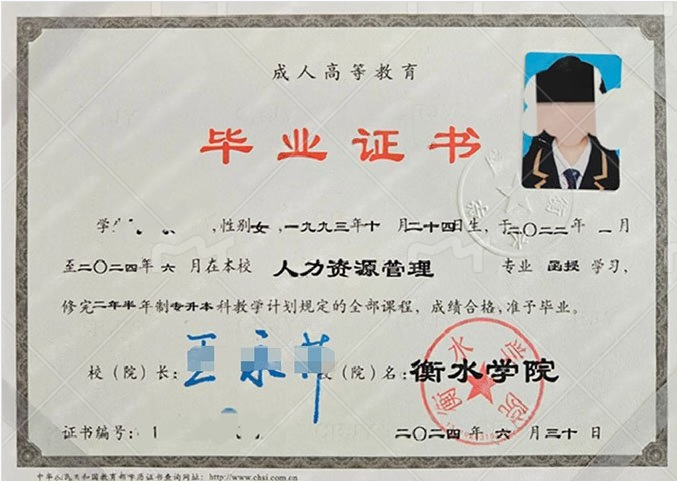 成人高等教育
毕业证书
学生 ,性别女,一九九三年十月二十四日生,于二〇二二年一月
至二〇二四年六月在本校 人力资源管理 专业 函授 学习,
修完二年半年制专升本科教学计划规定的全部课程,成绩合格,准予毕业。
校(院)长: 校(院)名:衡水学院
衡水学院
证书编号:1 二〇二四年六月三十日
中华人民共和国教育部学历证书查询网址:http://www.chsi.com.cn